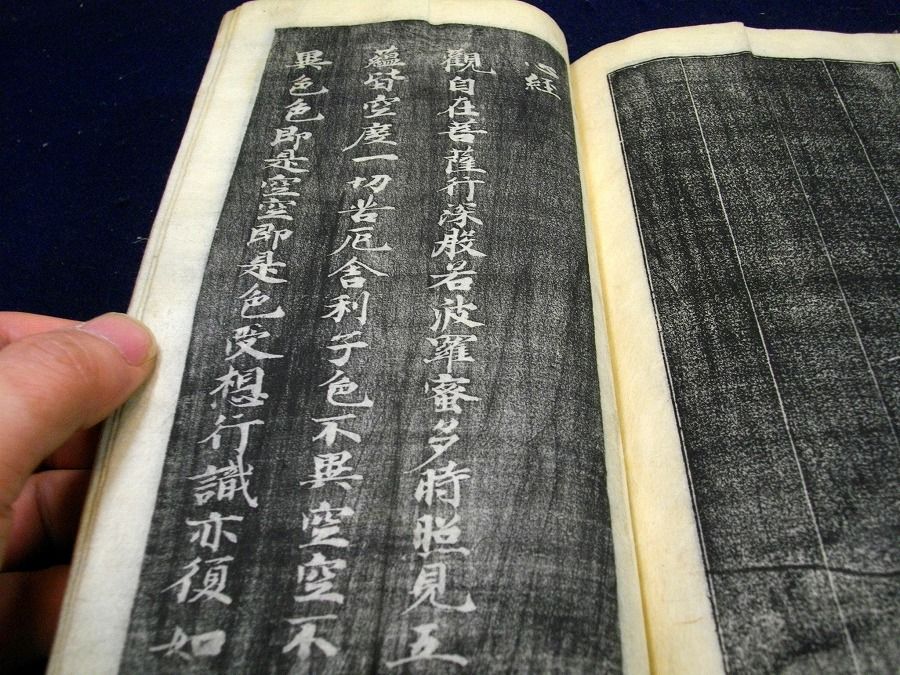 心經
觀自在菩薩行深般若波羅蜜多時照見五
蘊皆空度一切苦厄舍利子色不異空空不
異色色即是空空即是色受想行識亦復如